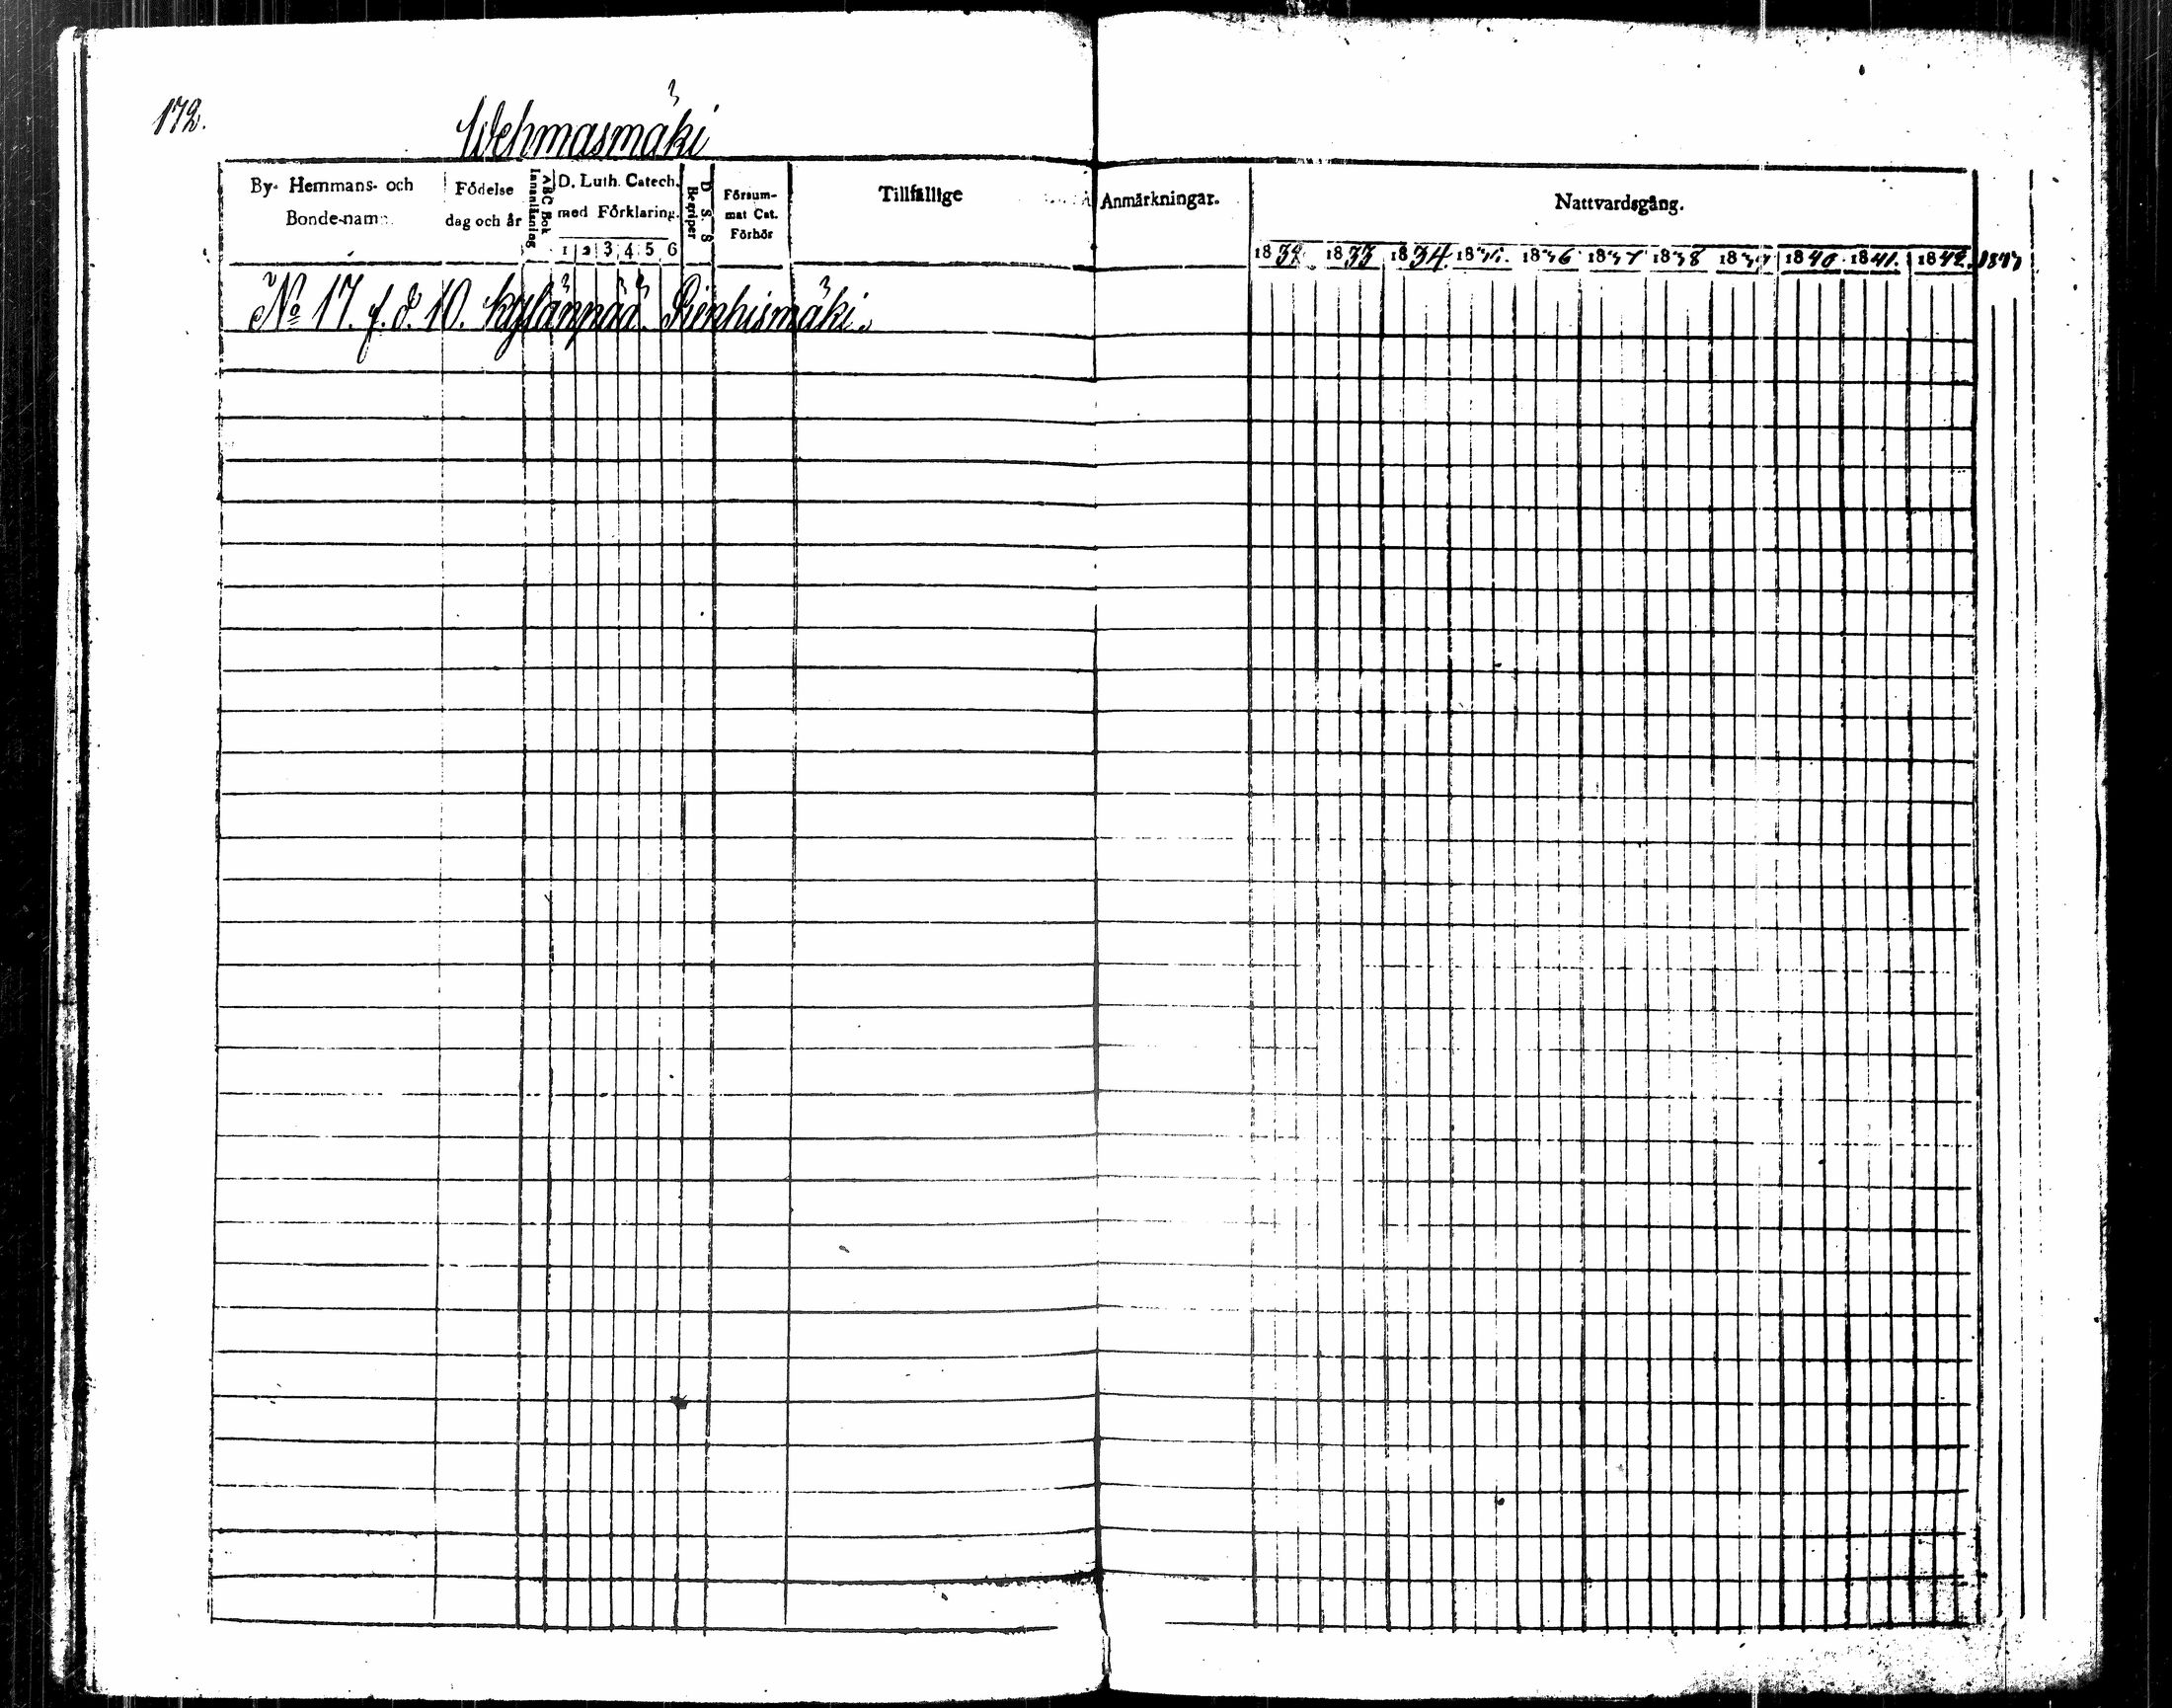 172.
Wehmasmäki
By- Hemmans- och
Bonde-namn.
Födelse
dag och år
ABC Bok
Innanläsning
D. Luth. Catech.
med Förklaring.
1 2 3 4 5 6
D. S. S
Begriper
Försum-
mat Cat.
Förhör
Tillfällige Anmärkningar.
Nattvardsgång.
1832. 1833 1834 1835. 1836 1837 1838 1839 1840 1841. 1842. 1843
No 17. f. d. 10. Kylänpää. Pienhismäki.